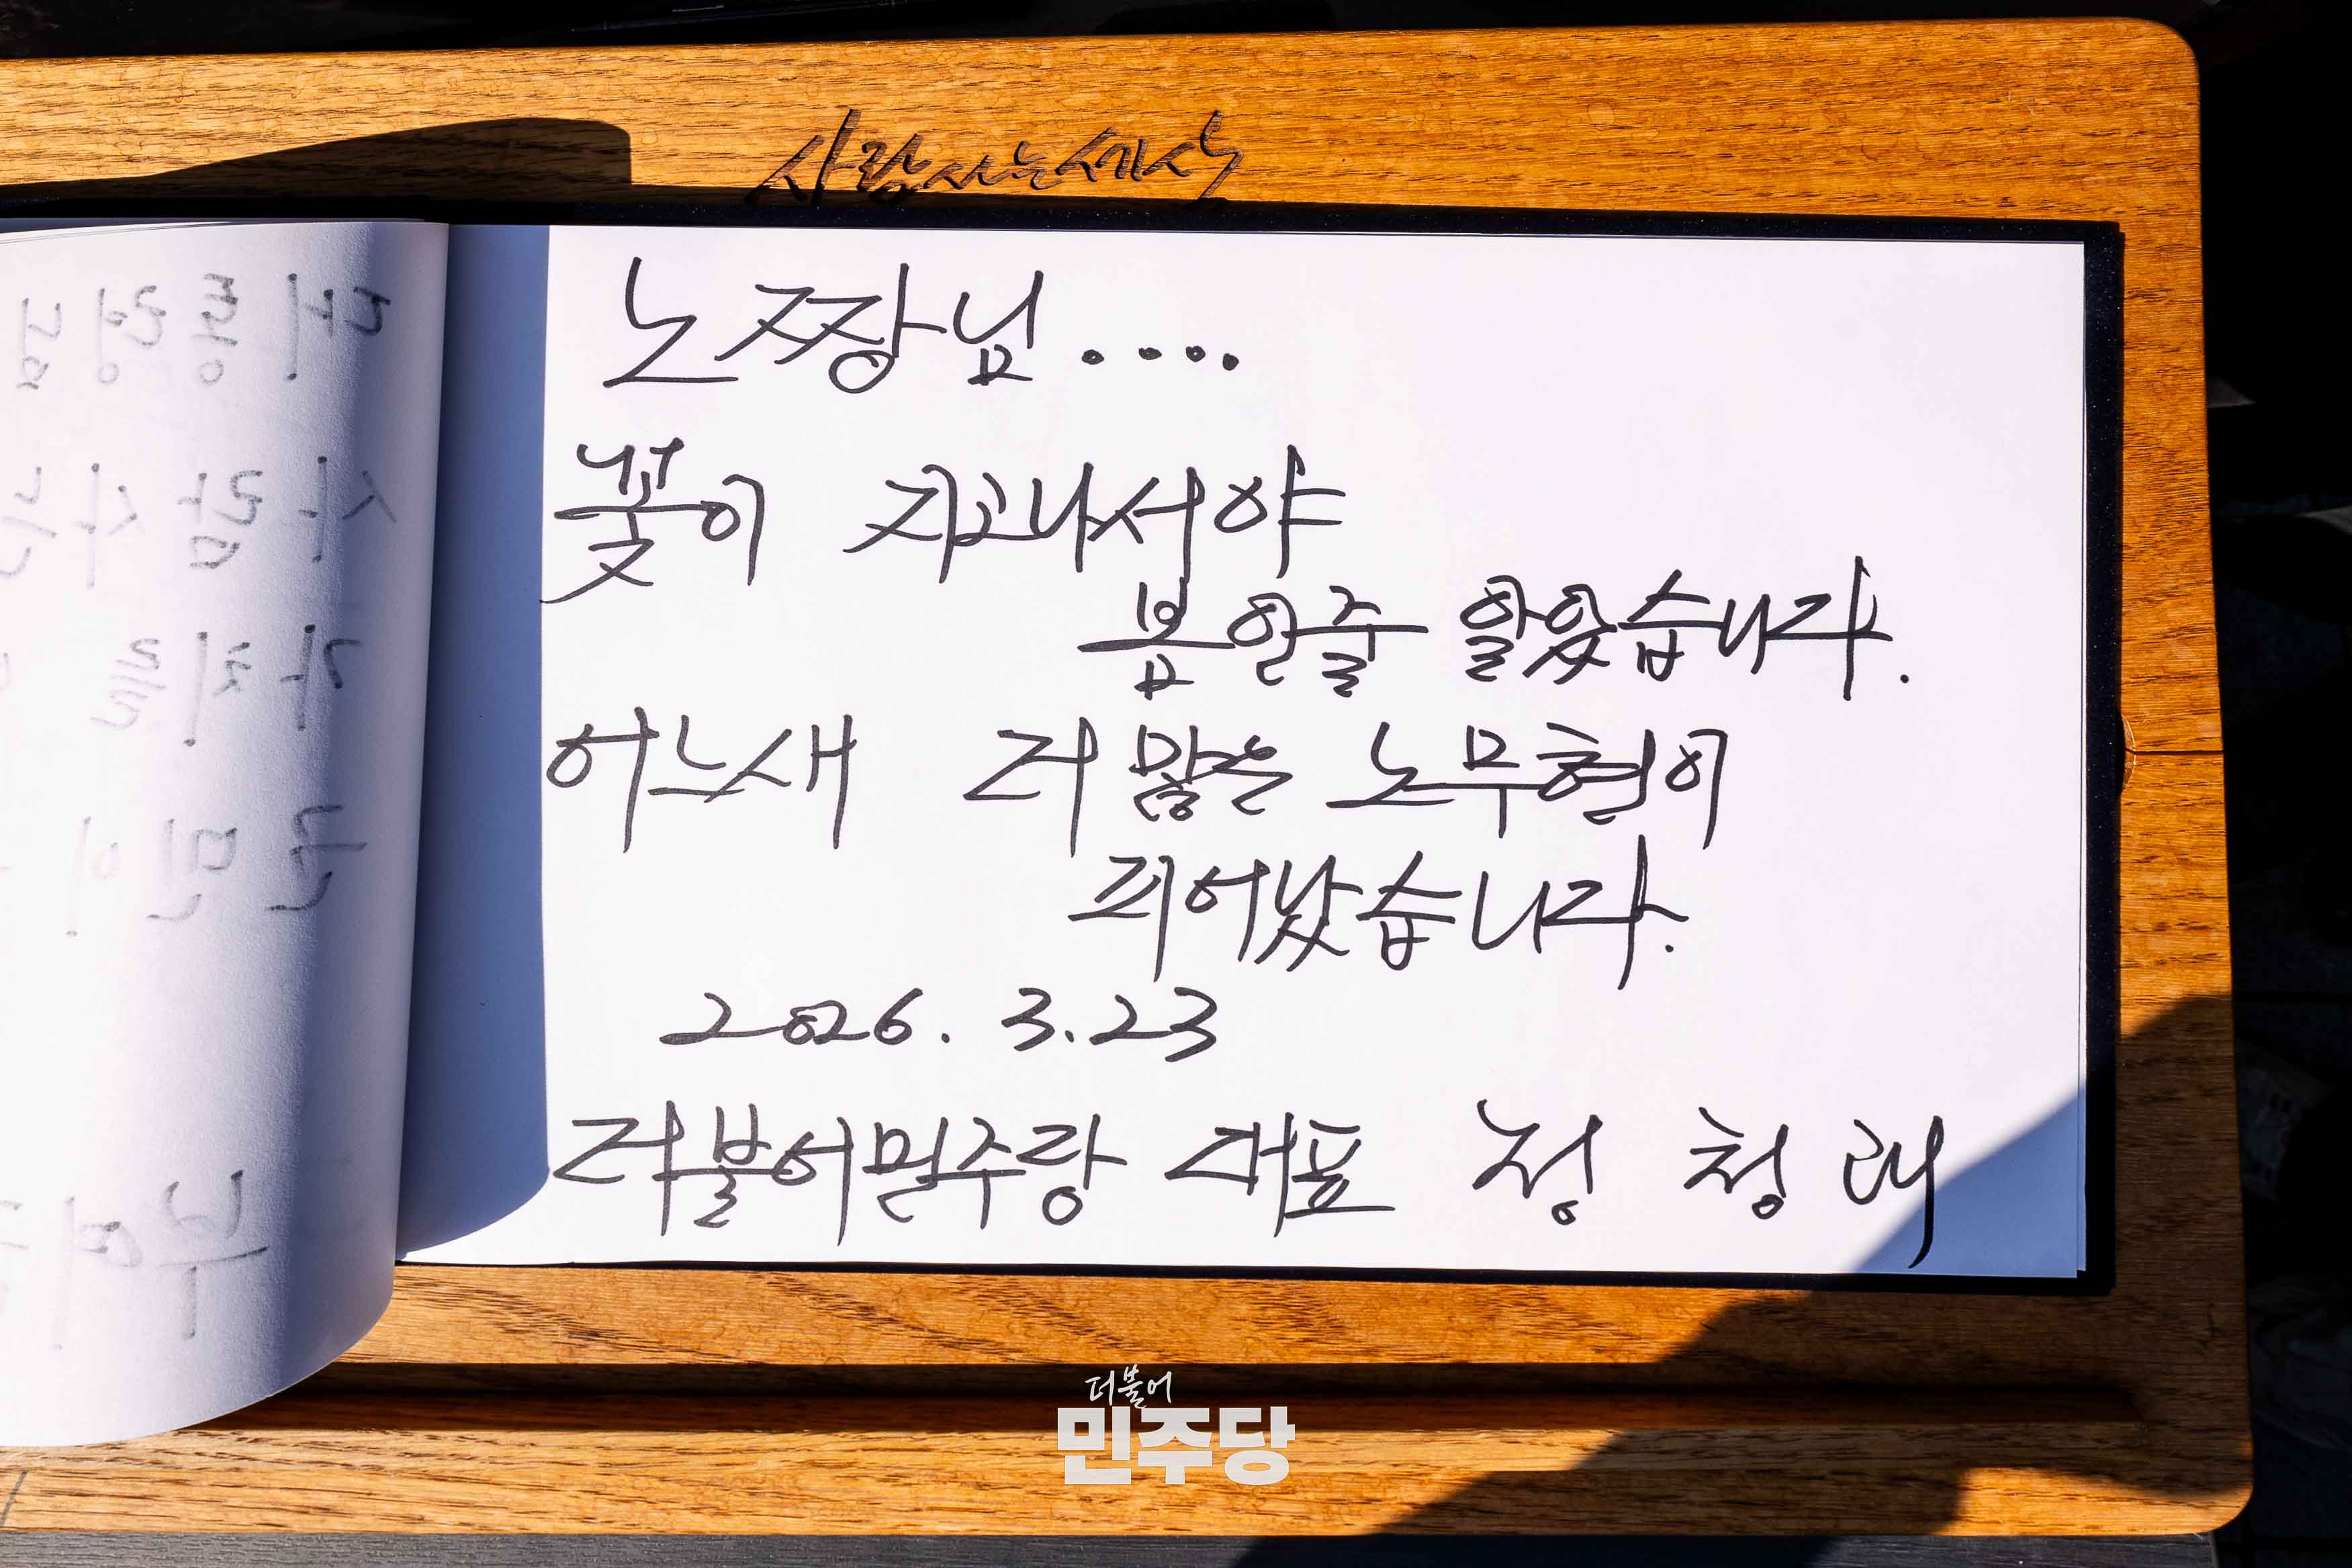 사람사는세상
노짱님....
꽃이 지고나서야
봄인줄 알았습니다.
어느새 더 많은 노무현이
피어났습니다.
2026. 3.23
더불어민주당 대표 정 청 래
더불어
민주당